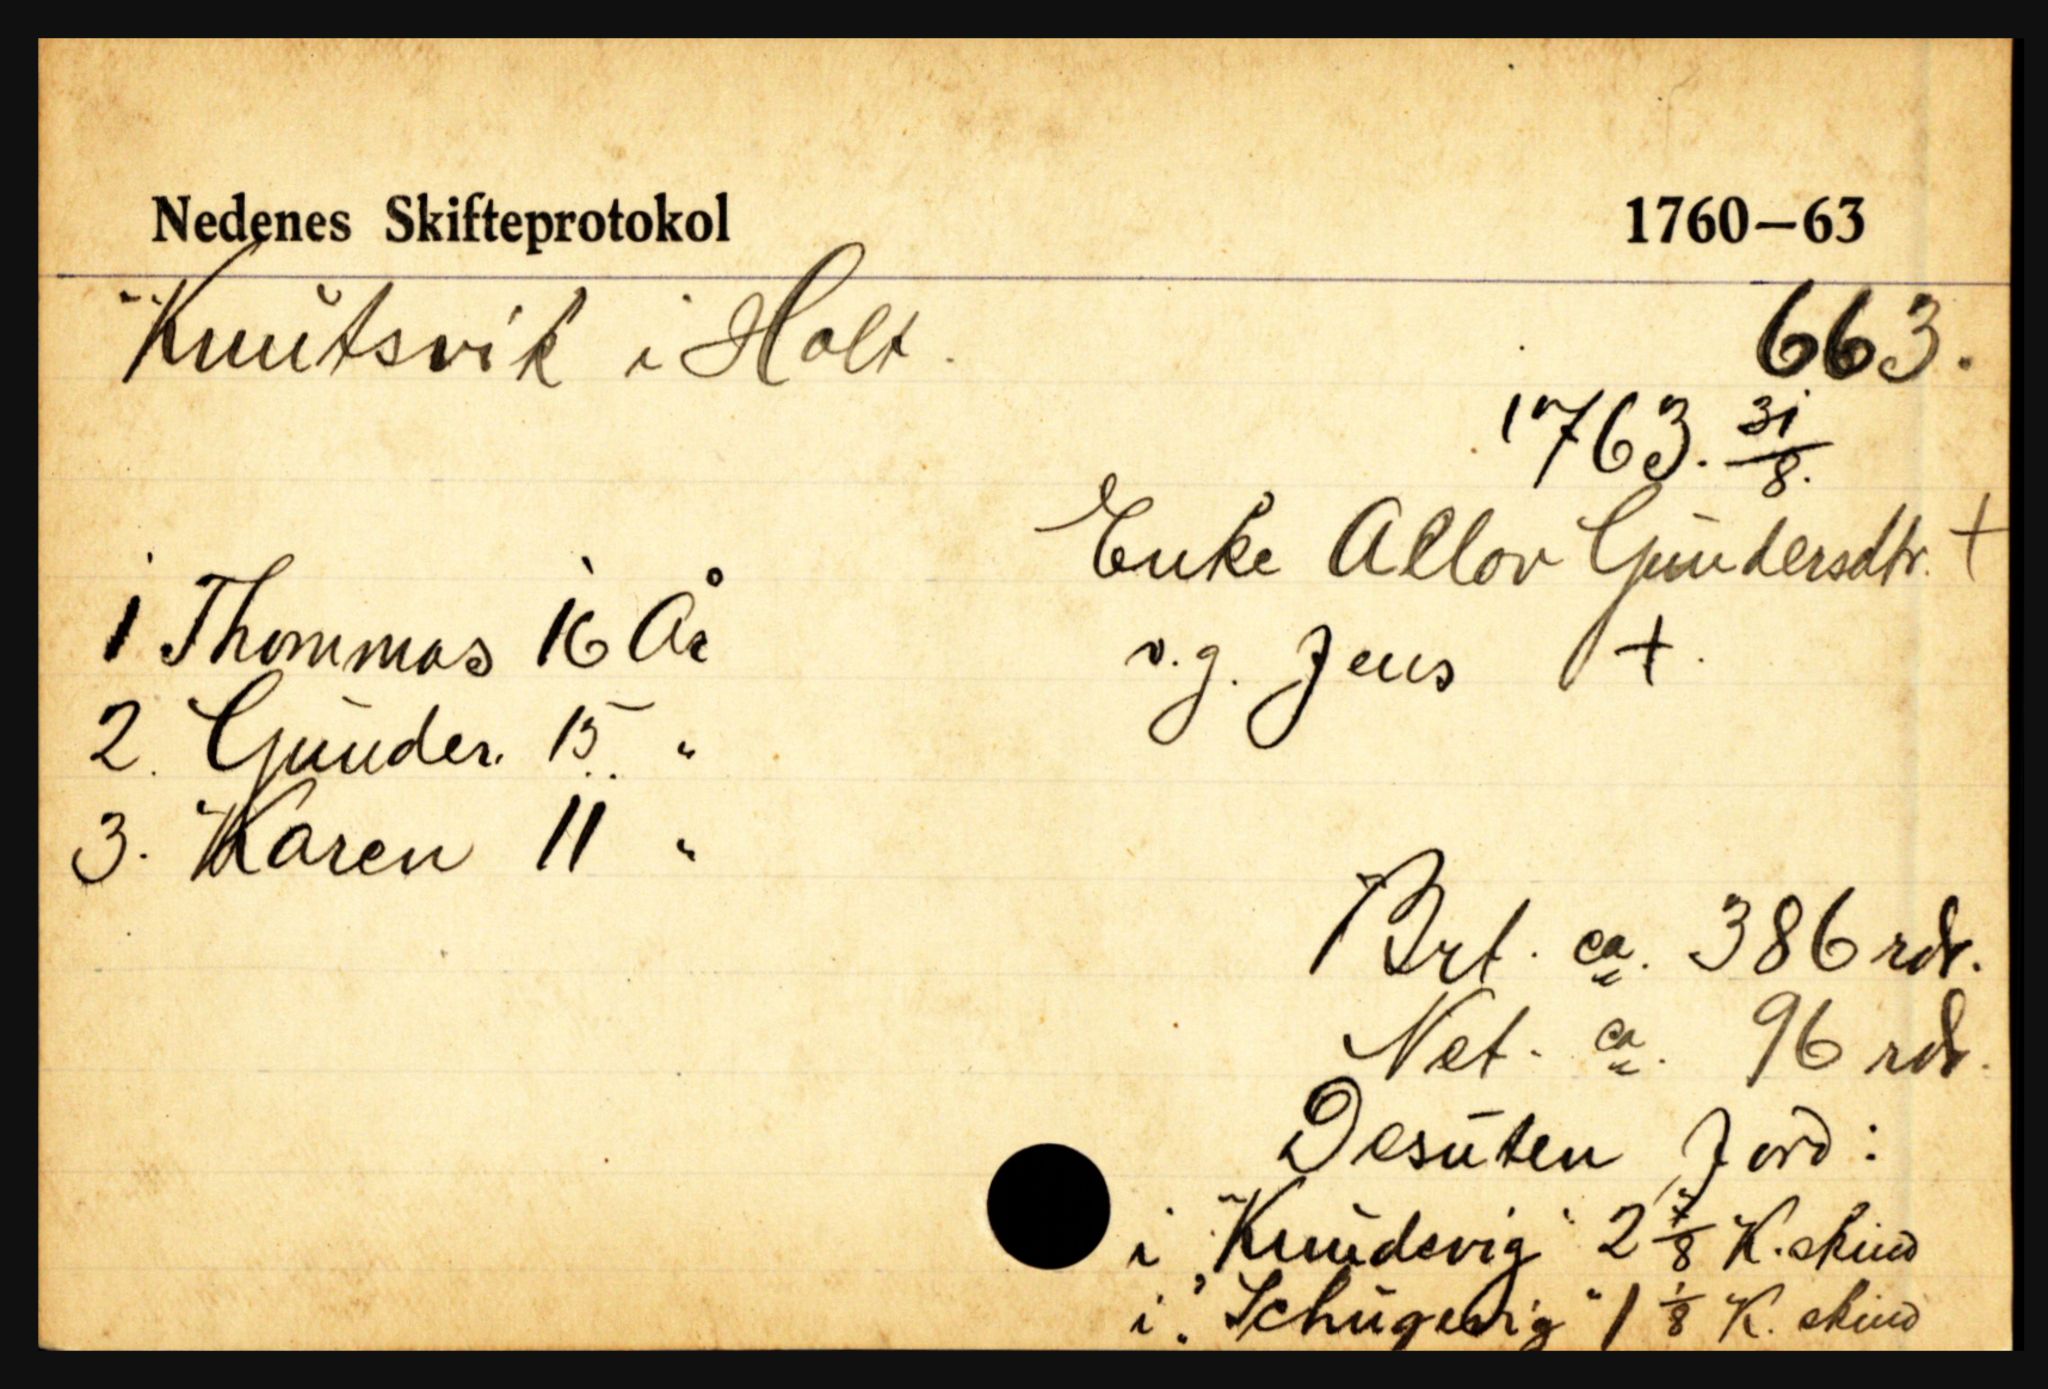 Nedenes Skifteprotokol 1760–63
Knutsvik i Holt.
663.
1763. 31/8.
Enke Allov Gundersdtr. +
v.g. Jens +.
1 Thommas 16 År
2. Gunder. 15 "
3. Karen 11 "
Brt. ca. 386 rdr.
Net. ca. 96 rdr.
Desuten Jord:
i "Knudsvig" 2 7/8 K. skind
i "Schugevig" 1 1/8 K. skind